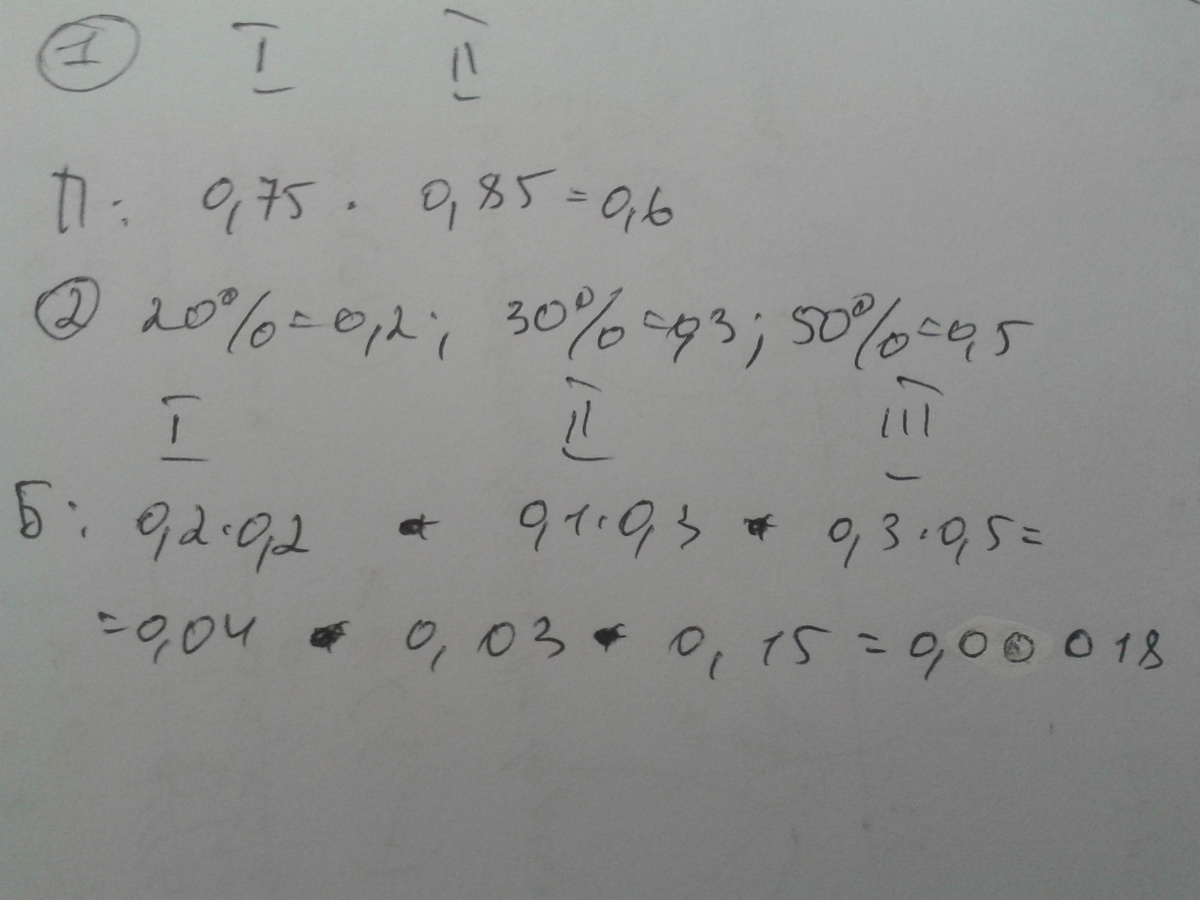 ① I II
П: 0,75 · 0,85 = 0,6
② 20% = 0,2; 30% = 0,3; 50% = 0,5
I II III
Б: 0,2 · 0,2 * 0,1 · 0,3 * 0,3 · 0,5 =
= 0,04 * 0,03 * 0,15 = 0,00018